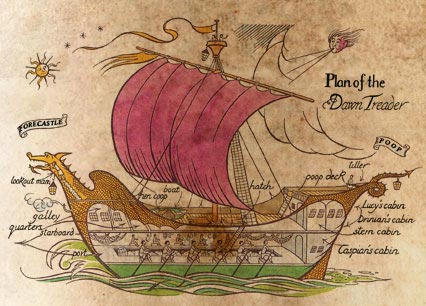 Plan of the
Dawn Treader
FORECASTLE
POOP
tiller
poop deck
lookout man
boat
hen coop
hatch
Lucy's cabin
galley
Drinian's cabin
quarters
starboard
stern cabin
port
Caspian's cabin